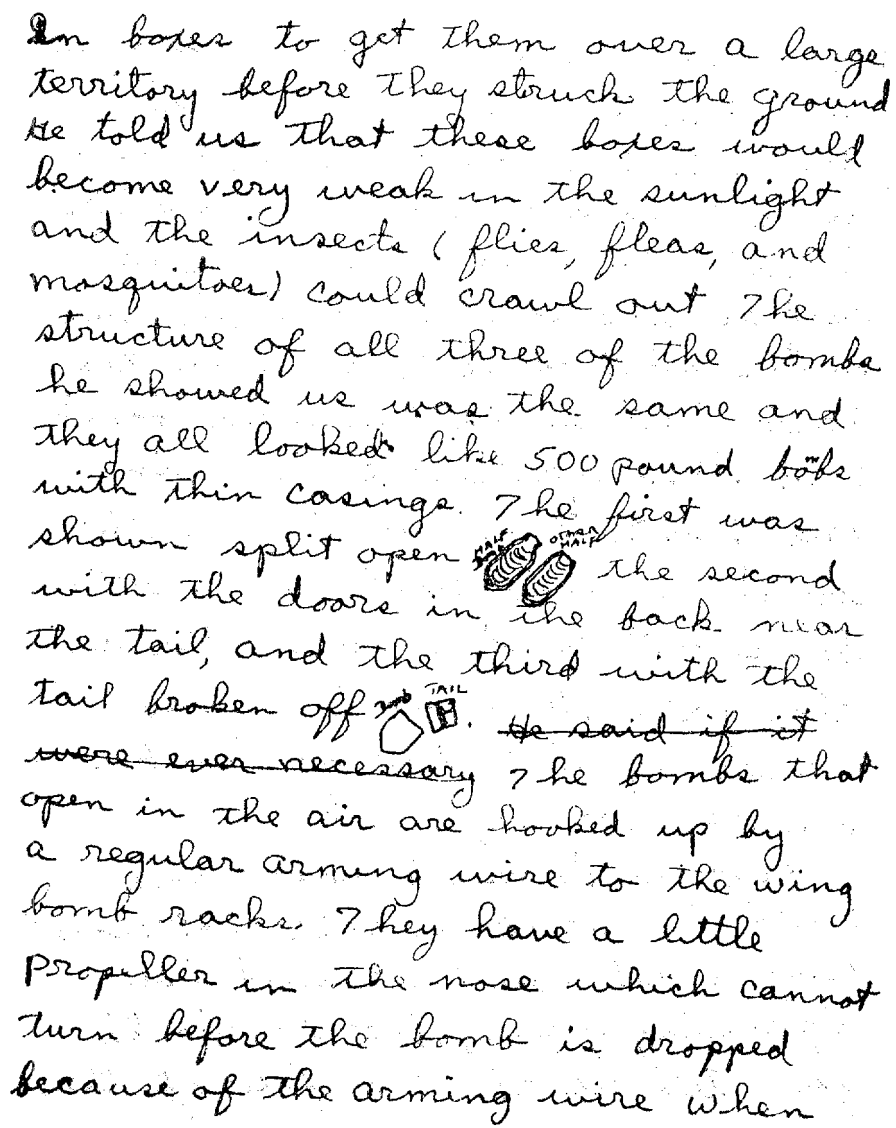 In boxes to get them over a large
territory before they struck the ground
He told us that these boxes would
become very weak in the sunlight
and the insects (flies, fleas, and
mosquitoes) could crawl out The
structure of all three of the bombs
he showed us was the same and
they all looked like 500 pound bombs
with thin casings. The first was
shown split open HALF OTHER HALF the second
with the doors in the back near
the tail, and the third with the
tail broken off Bomb TAIL. He said if it
were ever necessary The bombs that
open in the air are hooked up by
a regular arming wire to the wing
bomb racks. They have a little
propeller in the nose which cannot
turn before the bomb is dropped
because of the arming wire when